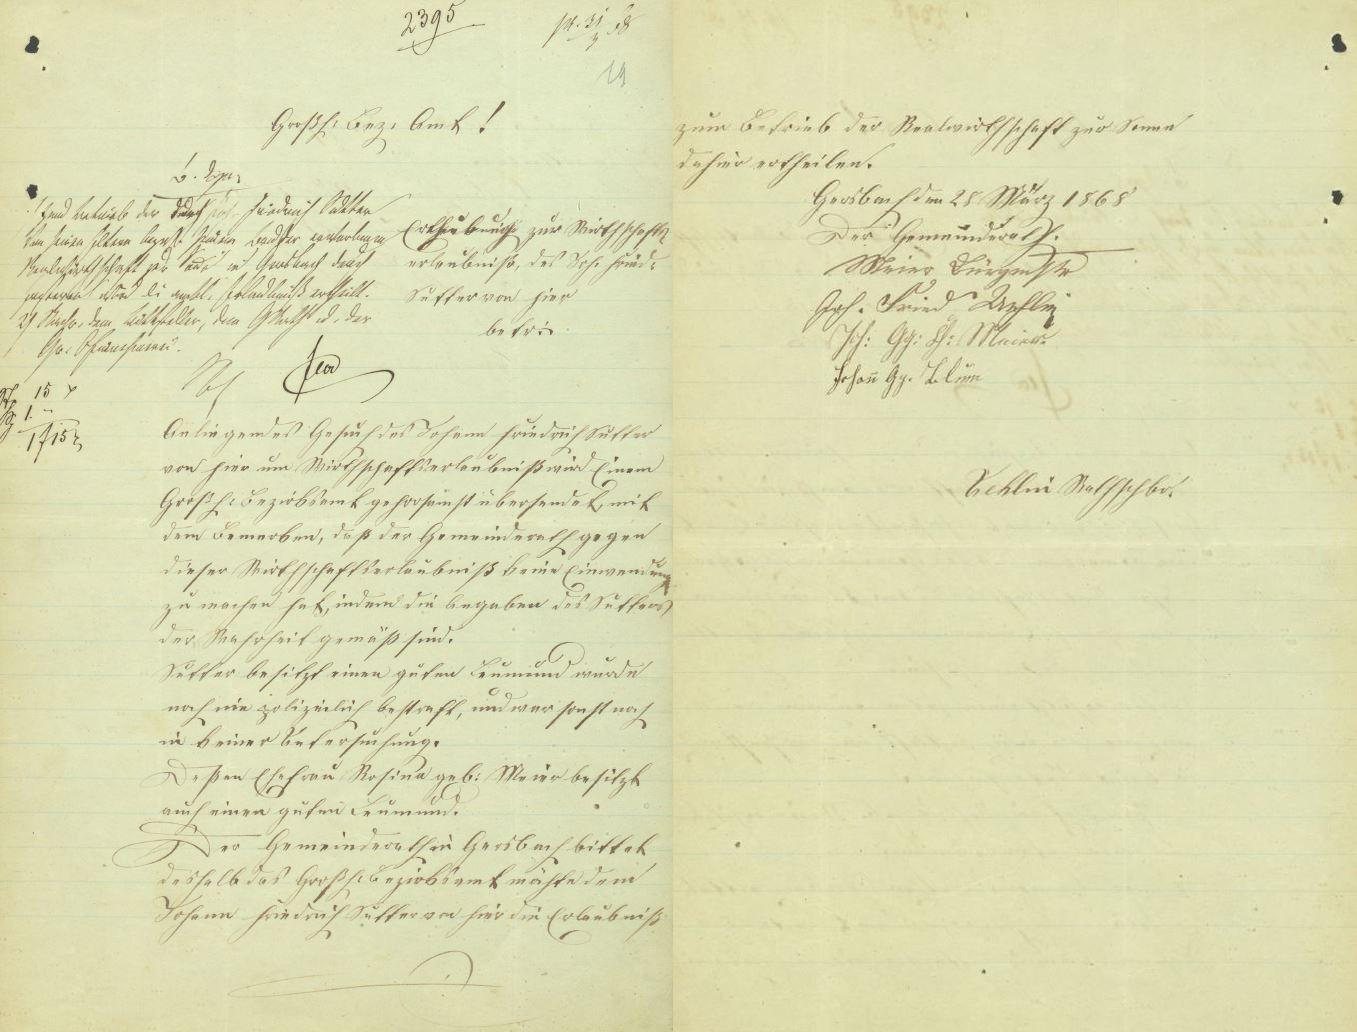 2395
pr. 31/3 68
19
Großh: Bez. Amt!
B. Dspr.
Zum Betrieb der durch Joh. Friedrich Sutter
von seinen Eltern bezw. seinem Bruder erworbenen
Realwirthschaft zur Sonne in Gersbach durch
wird die amtl. Erlaubniß ertheilt.
Nachr. dem Bittsteller, dem Gmdrath u. der
Gr. Obereinnehmerei.
15 x
1. "
1 f 15 x
zur Wirthschafts
erlaubniß, des Joh. Fried:
Sutter von hier
betr:
Anliegendes Gesuch des Johann Friedrich Sutter
von hier um Wirthschaftserlaubniß wird Einem
Großh: Bezirksamt gehorsamst übersendet, mit
dem Bemerken, daß der Gemeinderath gegen
dieser Wirthschaftserlaubniß keine Einwendung
zu machen hat, indem die Angaben des Sutters
der Wahrheit gemäß sind.
Sutter besitzt einen guten Leumund wurde
noch nie polizeilich bestraft, und war sonst noch
in keiner Untersuchung.
Deßen Ehefrau Rosina geb: Meier besitzt
auch einen guten Leumund.
Der Gemeinderath in Gersbach bittet
deshalb das Großh: Bezirksamt möchte dem
Johann Friedrich Sutter von hier die Erlaubniß
zum Betrieb der Realwirthschaft zur Sonne
dahier ertheilen.
Gersbach den 28 März 1868
Der Gemeinderath.
Meier Bürgmstr
Joh. Fried Uehlin
Joh: Gg: Fr: Maier.
Johañ Gg. Blum
Uehlin Rathschbr.